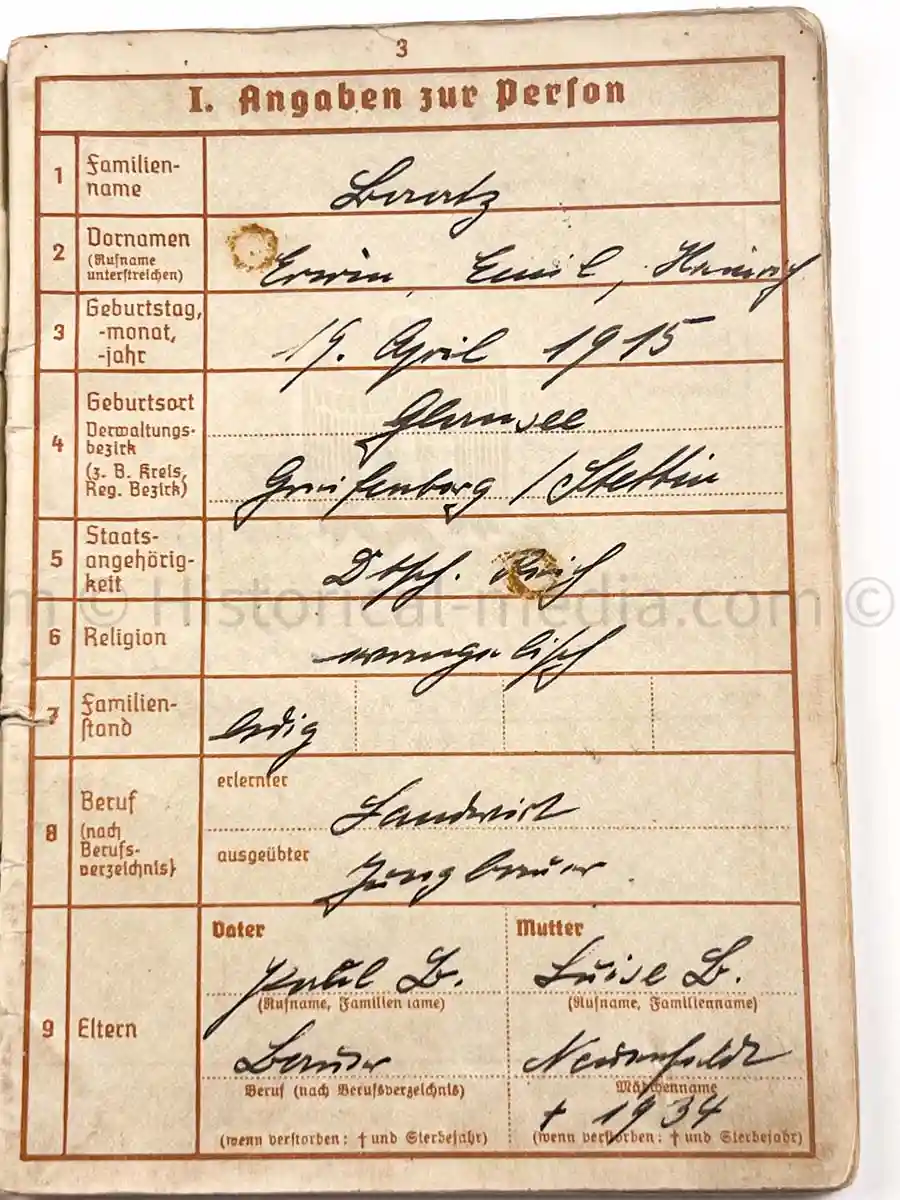 3
I. Angaben zur Person
1 Familien-
name
2 Vornamen
(Rufname
unterstreichen)
Erwin, Emil, Heinrich
3 Geburtstag,
-monat,
-jahr
19. April 1915
4 Geburtsort
Verwaltungs-
bezirk
(z. B. Kreis,
Reg. Bezirk)
Glansee
Greifenberg / Stettin
5 Staats-
angehörig-
keit
Dtsch. Reich
6 Religion
evangelisch
7 Familien-
stand
ledig
8 Beruf
(nach
Berufs-
verzeichnis)
erlernter
Landwirt
ausgeübter
Jungbauer
9 Eltern
Vater
Paul B.
(Rufname, Familienname)
Bauer
Beruf (nach Berufsverzeichnis)
(wenn verstorben: † und Sterbejahr)
Mutter
Luise B.
(Rufname, Familienname)
Mädchenname
† 1934
(wenn verstorben: † und Sterbejahr)
m © Historical-media.com ©